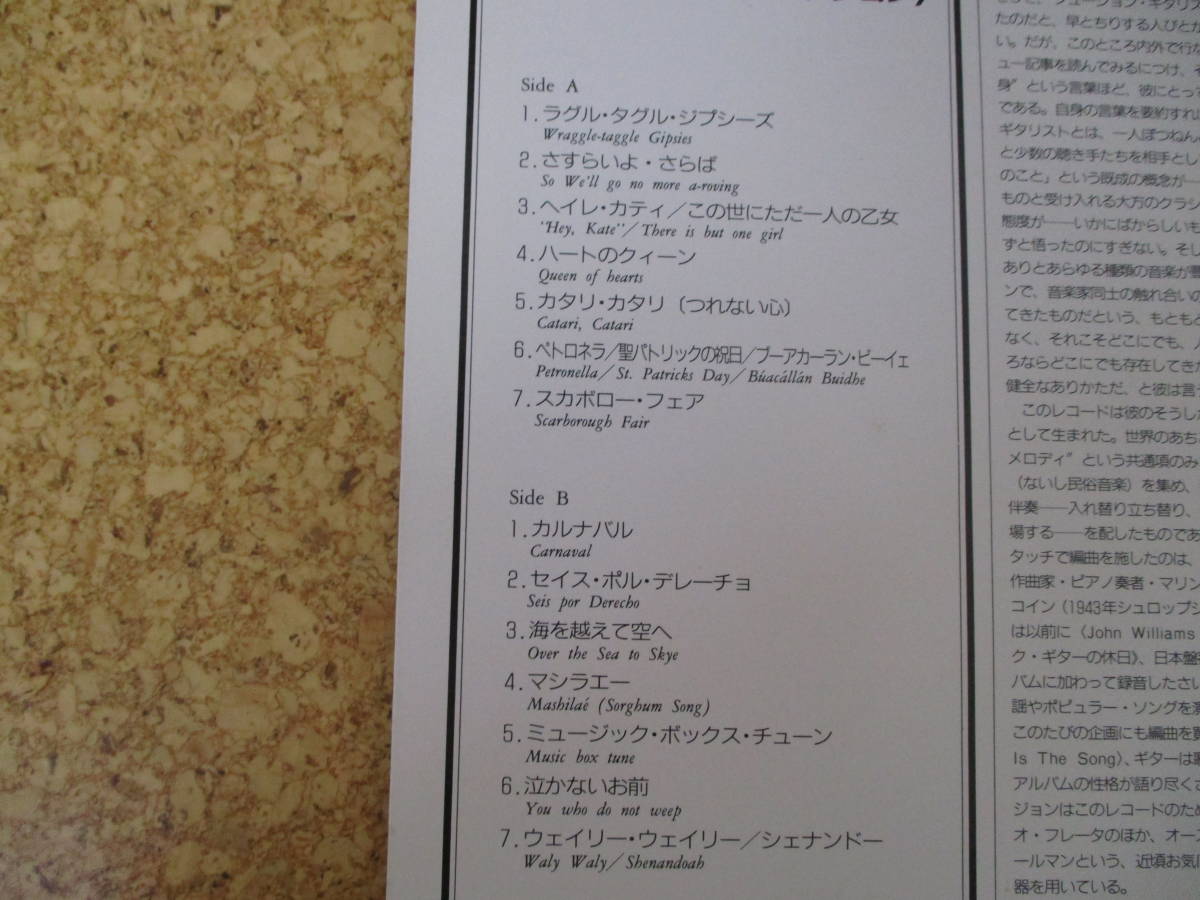 ション)
Side A
1.ラグル・タグル・ジプシーズ
Wraggle-taggle Gipsies
2.さすらいよ・さらば
So We'll go no more a-roving
3.ヘイレ・カティ/この世にただ一人の乙女
"Hey, Kate"/There is but one girl
4.ハートのクィーン
Queen of hearts
5.カタリ・カタリ(つれない心)
Catari, Catari
6.ペトロネラ/聖パトリックの祝日/ブーアカーラン・ビーイェ
Petronella/St. Patricks Day/Búacállán Buidhe
7.スカボロー・フェア
Scarborough Fair
Side B
1.カルナバル
Carnaval
2.セイス・ポル・デレーチョ
Seis por Derecho
3.海を越えて空へ
Over the Sea to Skye
4.マシラエー
Mashilaé (Sorghum Song)
5.ミュージック・ボックス・チューン
Music box tune
6.泣かないお前
You who do not weep
7.ウェイリー・ウェイリー/シェナンドー
Waly Waly/Shenandoah
たのだと、早とちりする人びとが
い。だが、このところ内外で行な
ュー記事を読んでみるにつけ、そ
身”という言葉ほど、彼にとって
である。自身の言葉を要約すれば
ギタリストとは、一人ぽつねん
と少数の聴き手たちを相手とし
のこと」という既成の概念が―
ものと受け入れる大方のクラシ
態度が――いかにばからしいも
すと悟ったのにすぎない。そし
ありとあらゆる種類の音楽が
ンで、音楽家同士の触れ合いの
てきたものだという、もともと
なく、それこそどこにでも、人
ろならどこにでも存在してきた
健全なありかただ、と彼は言う
このレコードは彼のそうした
として生まれた。世界のあち
メロディ”という共通項のみ
(ないし民俗音楽)を集め、
伴奏――入れ替り立ち替り、
場する――を配したものであ
タッチで編曲を施したのは、
作曲家・ピアノ奏者・マリン
コイン(1943年シュロップシ
は以前に〈John Williams
ク・ギターの休日》、日本盤
バムに加わって録音したさい
謡やポピュラー・ソングを
このたびの企画にも編曲を
Is The Song〉、ギターは
アルバムの性格が語り尽くさ
ジョンはこのレコードのため
オ・フレータのほか、オー
ールマンという、近頃お気に
器を用いている。